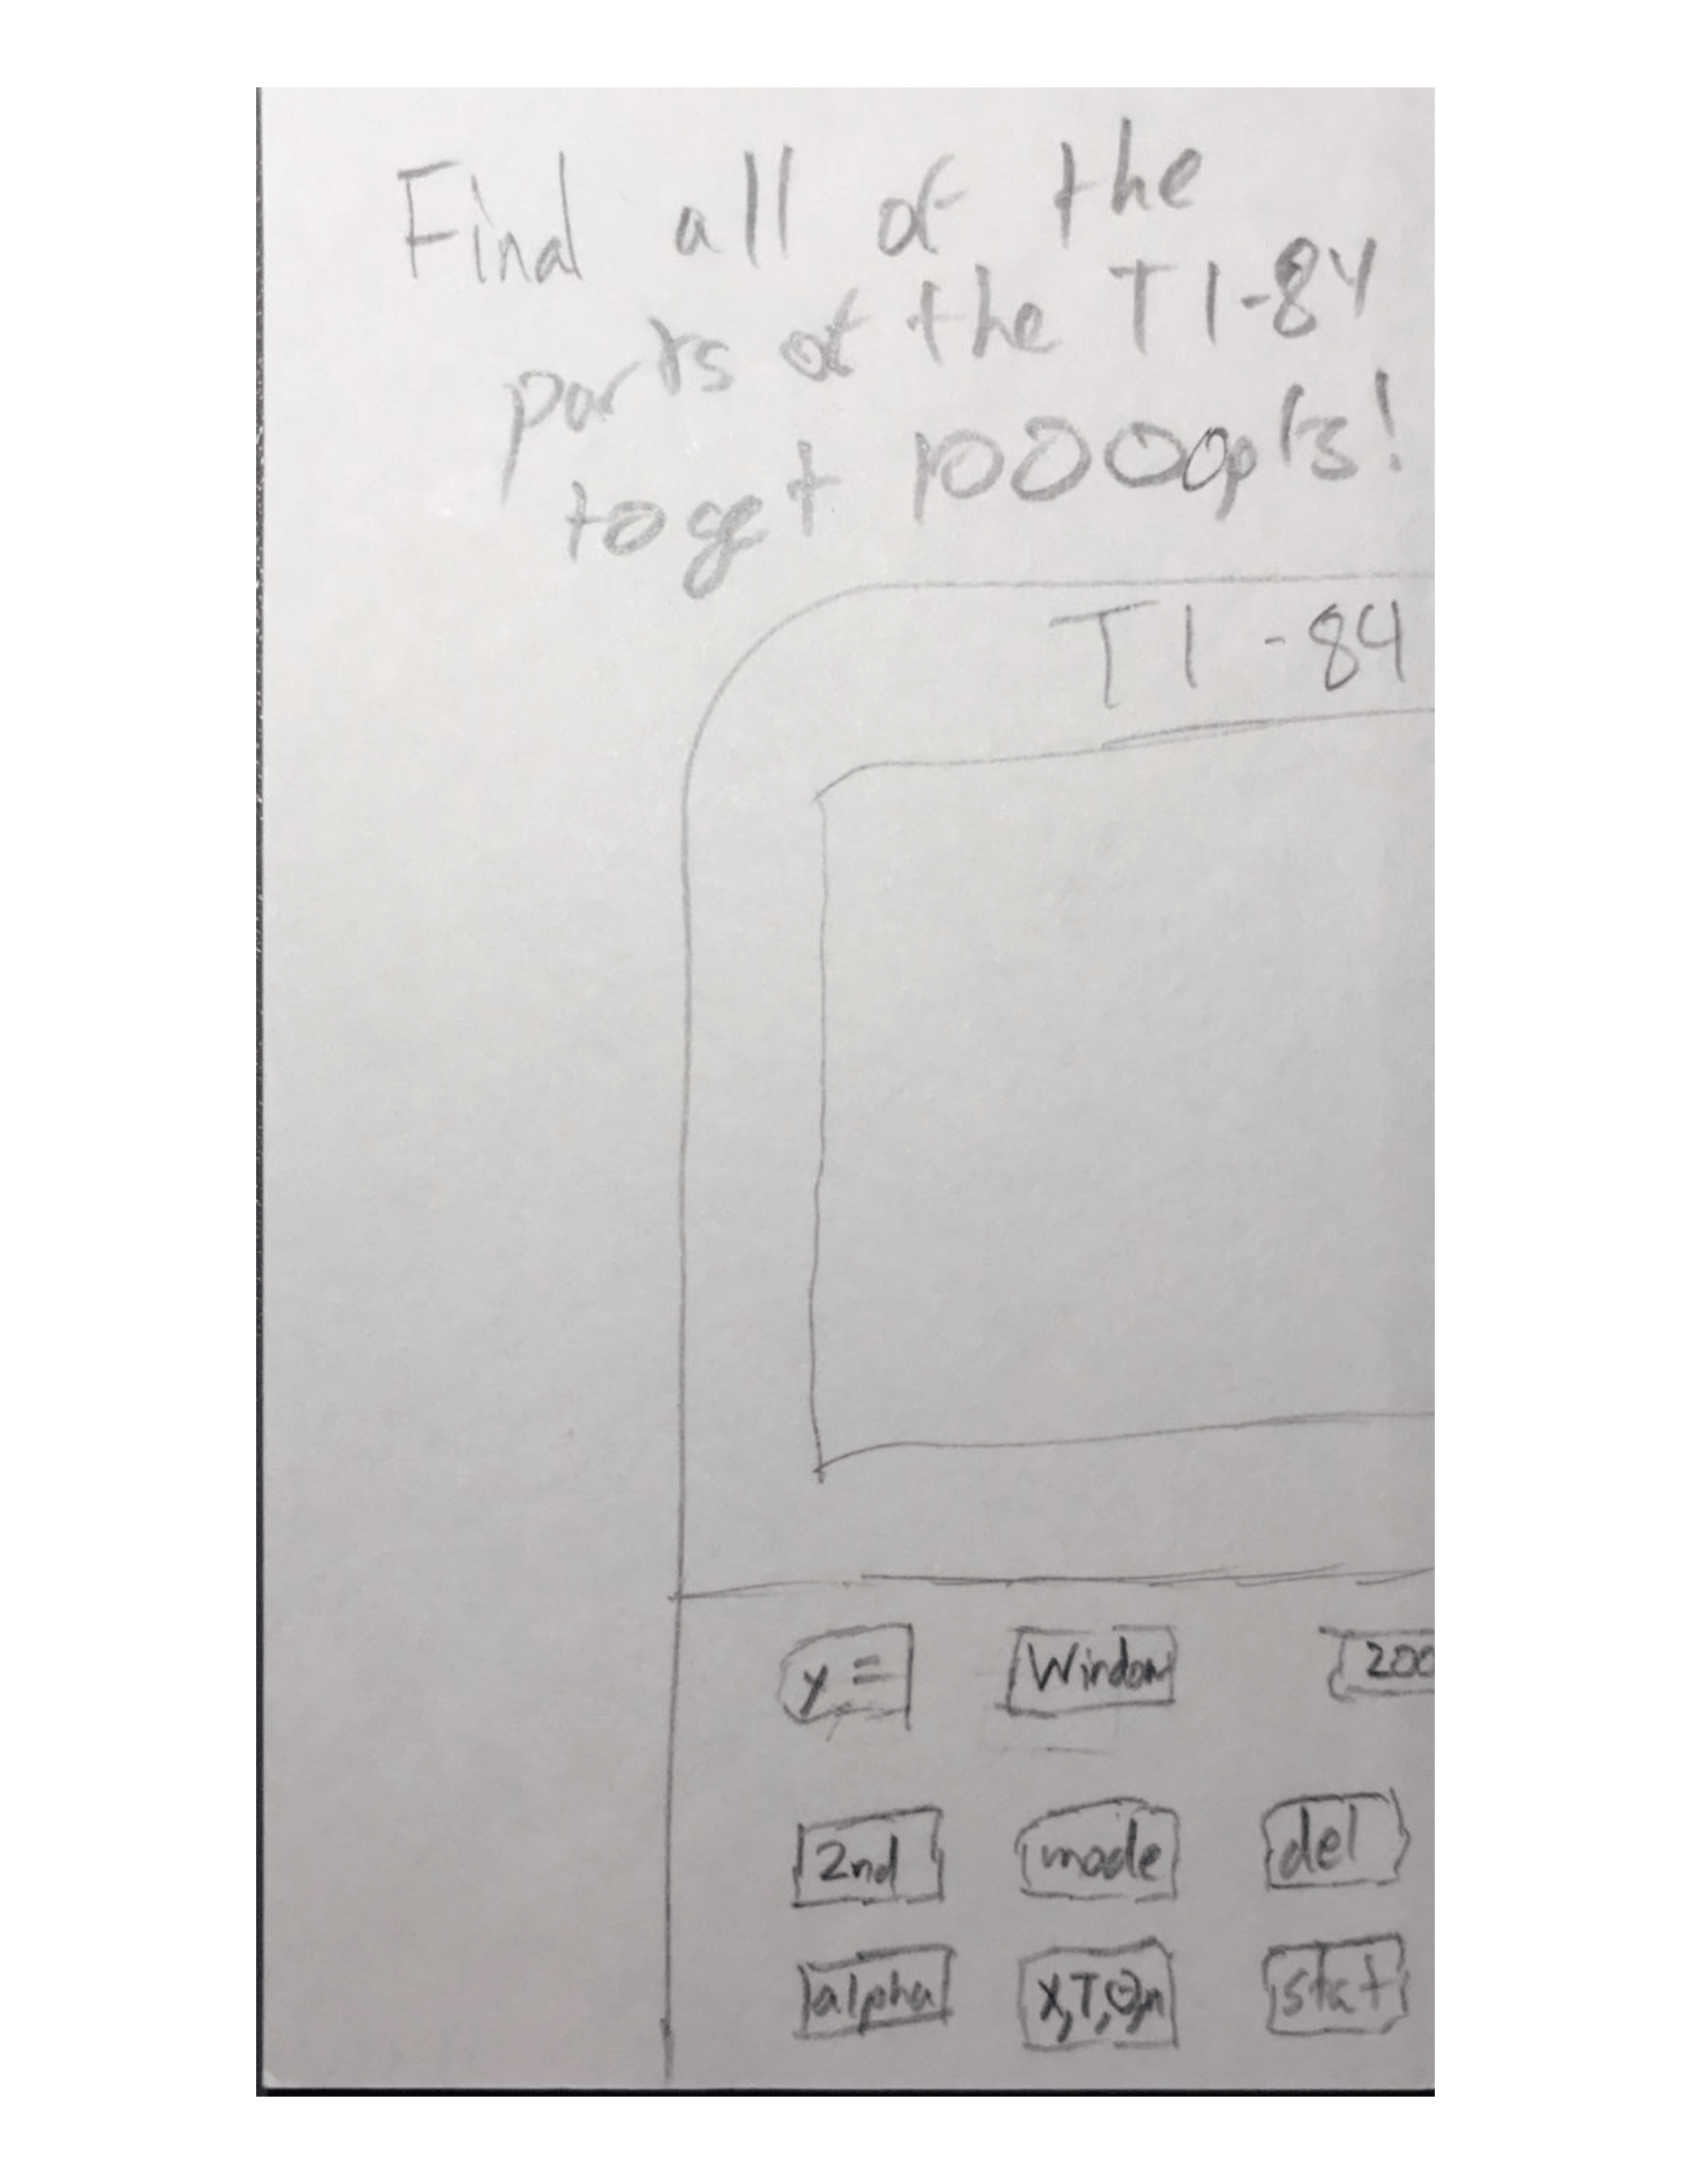 Find all of the
parts of the TI-84
to get 10000pts!
TI-84
y= Window zoo
2nd mode del
alpha X,T,θ,n stat